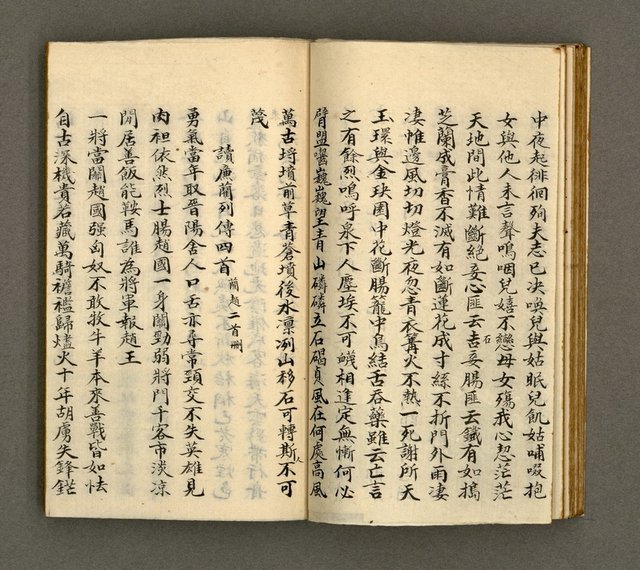 中夜起徘徊殉夫志已決喚兒與姑眠兒飢姑哺啜抱
女與他人未言聲嗚咽兒嬉不戀母女殤我心恝茫茫
天地間此情難斷絕妾心匪云石妾腸匪云鐵有如搗
芝蘭成膏香不滅有如斷蓮花成寸絲不折門外雨淒
淒帷邊風切切燈光夜忽青衣篝火不熱一死謝所天
玉環與金玦園中花斷腸籠中鳥結舌吞藥雖云亡言
之有餘烈嗚呼泉下人塵埃不可衊相逢定無慚何必
臂盟囓巍巍望青山磷磷五石碣貞風在何處高風
萬古埒墳前草青蒼墳後水凜冽山移石可轉斯人不可
蔑
讀廉藺列傳四首 藺趙二首刪
勇氣當年取晉陽舍人口舌亦尋常頸交不失英雄見
肉袒依然烈士腸趙國一身關勁弱將門千客市淡涼
閒居善飯能鞍馬誰為將軍報趙王
一將當關趙國強匈奴不敢牧牛羊本來善戰皆如怯
自古深機貴若藏萬騎襜襤歸燼火十年胡虜失鋒鋩